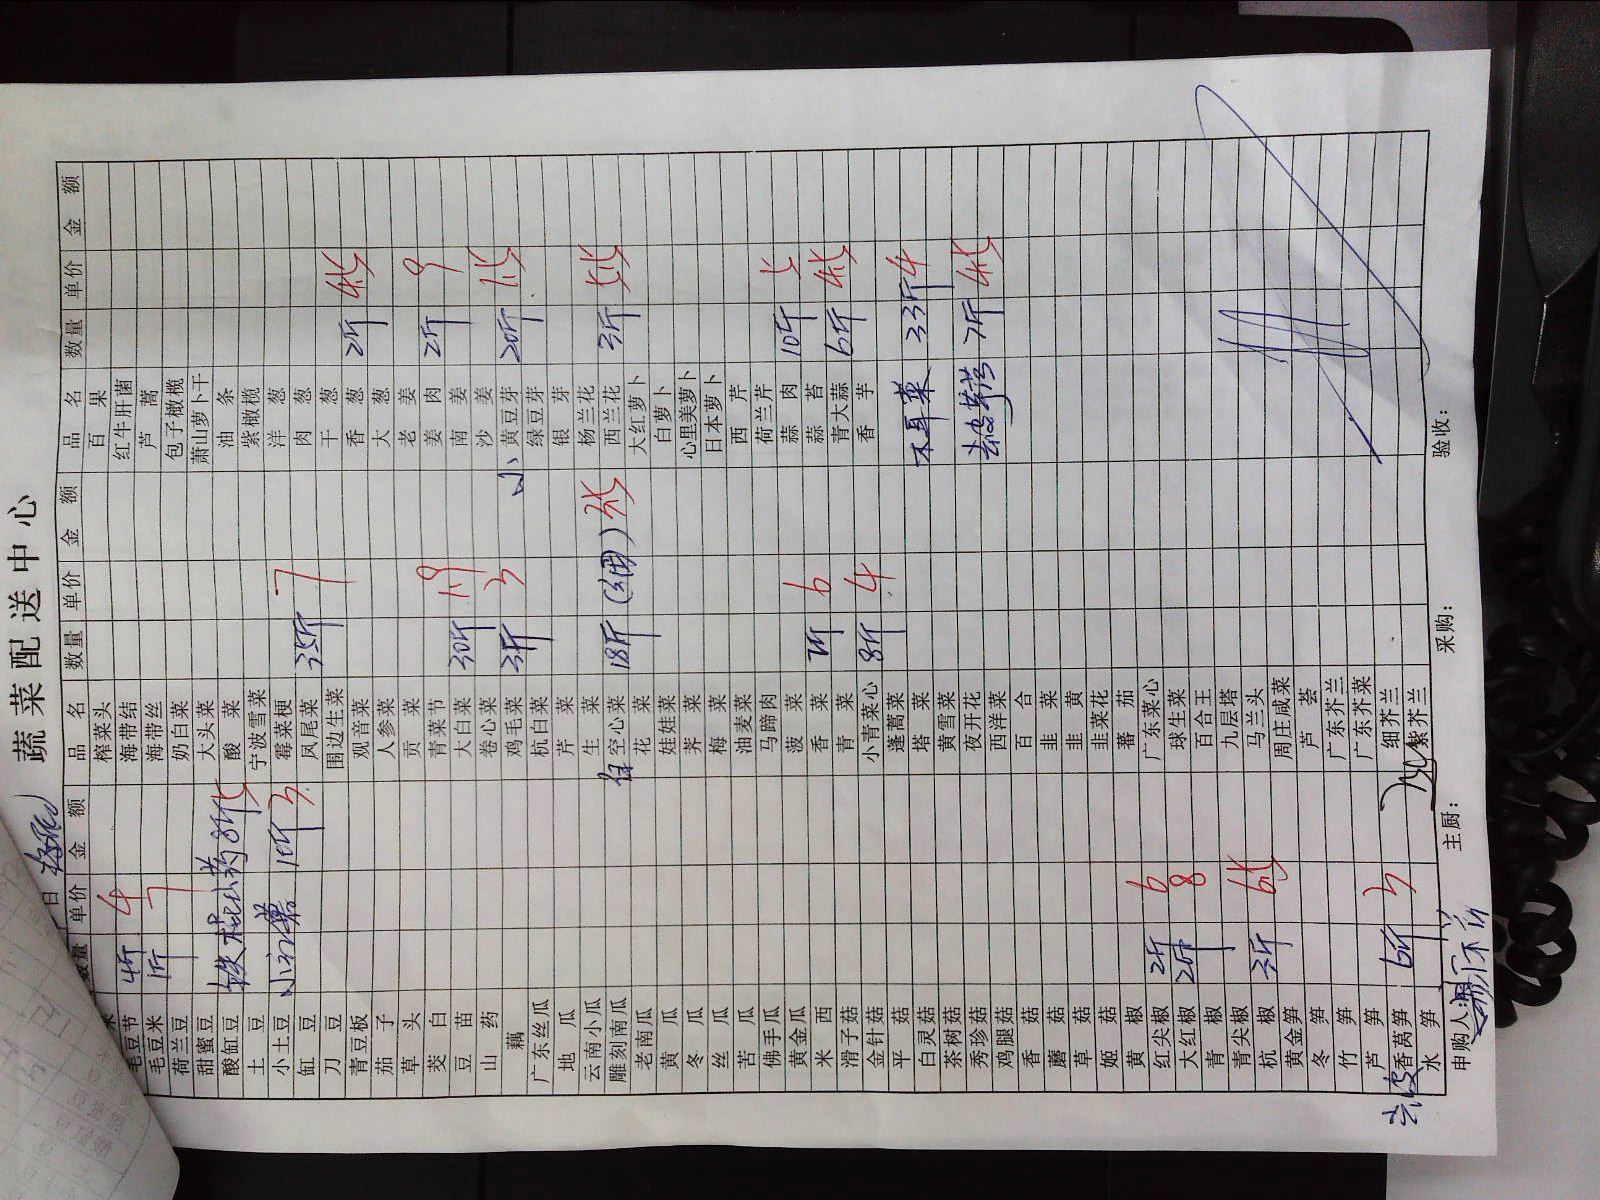 蔬菜配送中心
日
数量 单价 金额 品名 数量 单价 金额 品名 数量 单价 金额
榨菜头 百果
毛豆节 4斤 4 海带结 红牛肝菌
毛豆米 1斤 7 海带丝 芦蒿
荷兰豆 奶白菜 包子橄榄
甜蜜豆 大头菜 萧山萝卜干
酸缸豆 铁棍山药 8斤 酸菜 油条
土豆 宁波雪菜 紫橄榄
小土豆 10斤 3 霉菜梗 洋葱
缸豆 凤尾菜 35斤 7 肉葱
刀豆 围边生菜 干葱
青豆板 观音菜 香葱 2斤
茄子 人参菜 大葱
草头 贡菜 老姜
茭白 青菜节 姜肉 2斤 9
豆苗 大白菜 30斤 1.9 南姜
山药 卷心菜 沙姜
藕 鸡毛菜 3斤 3 小 黄豆芽 20斤
广东丝瓜 杭白菜 绿豆芽
地瓜 芹菜 银芽
云南小瓜 生菜 杨兰花
雕刻南瓜 空心菜 18斤 (细) 西兰花 3斤
老南瓜 花菜 大红萝卜
黄瓜 娃娃菜 白萝卜
冬瓜 荠菜 心里美萝卜
丝瓜 梅菜 日本萝卜
苦瓜 油麦菜 西芹
佛手瓜 马蹄肉 荷兰芹
黄金瓜 菠菜 蒜肉 10斤
西米 香菜 7斤 6 蒜苔
滑子菇 青菜 青大蒜 6斤
金针菇 小青菜心 8斤 4 香芋
平菇 蓬蒿菜
白灵菇 塔菜 木耳菜 33斤 4
茶树菇 黄雪菜
秀珍菇 夜开花 去皮 7斤
鸡腿菇 西洋菜
香菇 百合
蘑菇 韭菜
草菇 韭黄
姬菇 韭菜花
黄椒 蕃茄
红尖椒 2斤 6 广东菜心
大红椒 2斤 8 球生菜
青椒 百合王
青尖椒 九层塔
杭椒 3斤 马兰头
黄金笋 周庄咸菜
冬笋 芦荟
竹笋 广东芥兰
芦笋 广东芥菜
去皮 香莴笋 6斤 3 细芥兰
水笋 紫芥兰
申购人: 主厨: 采购: 验收: